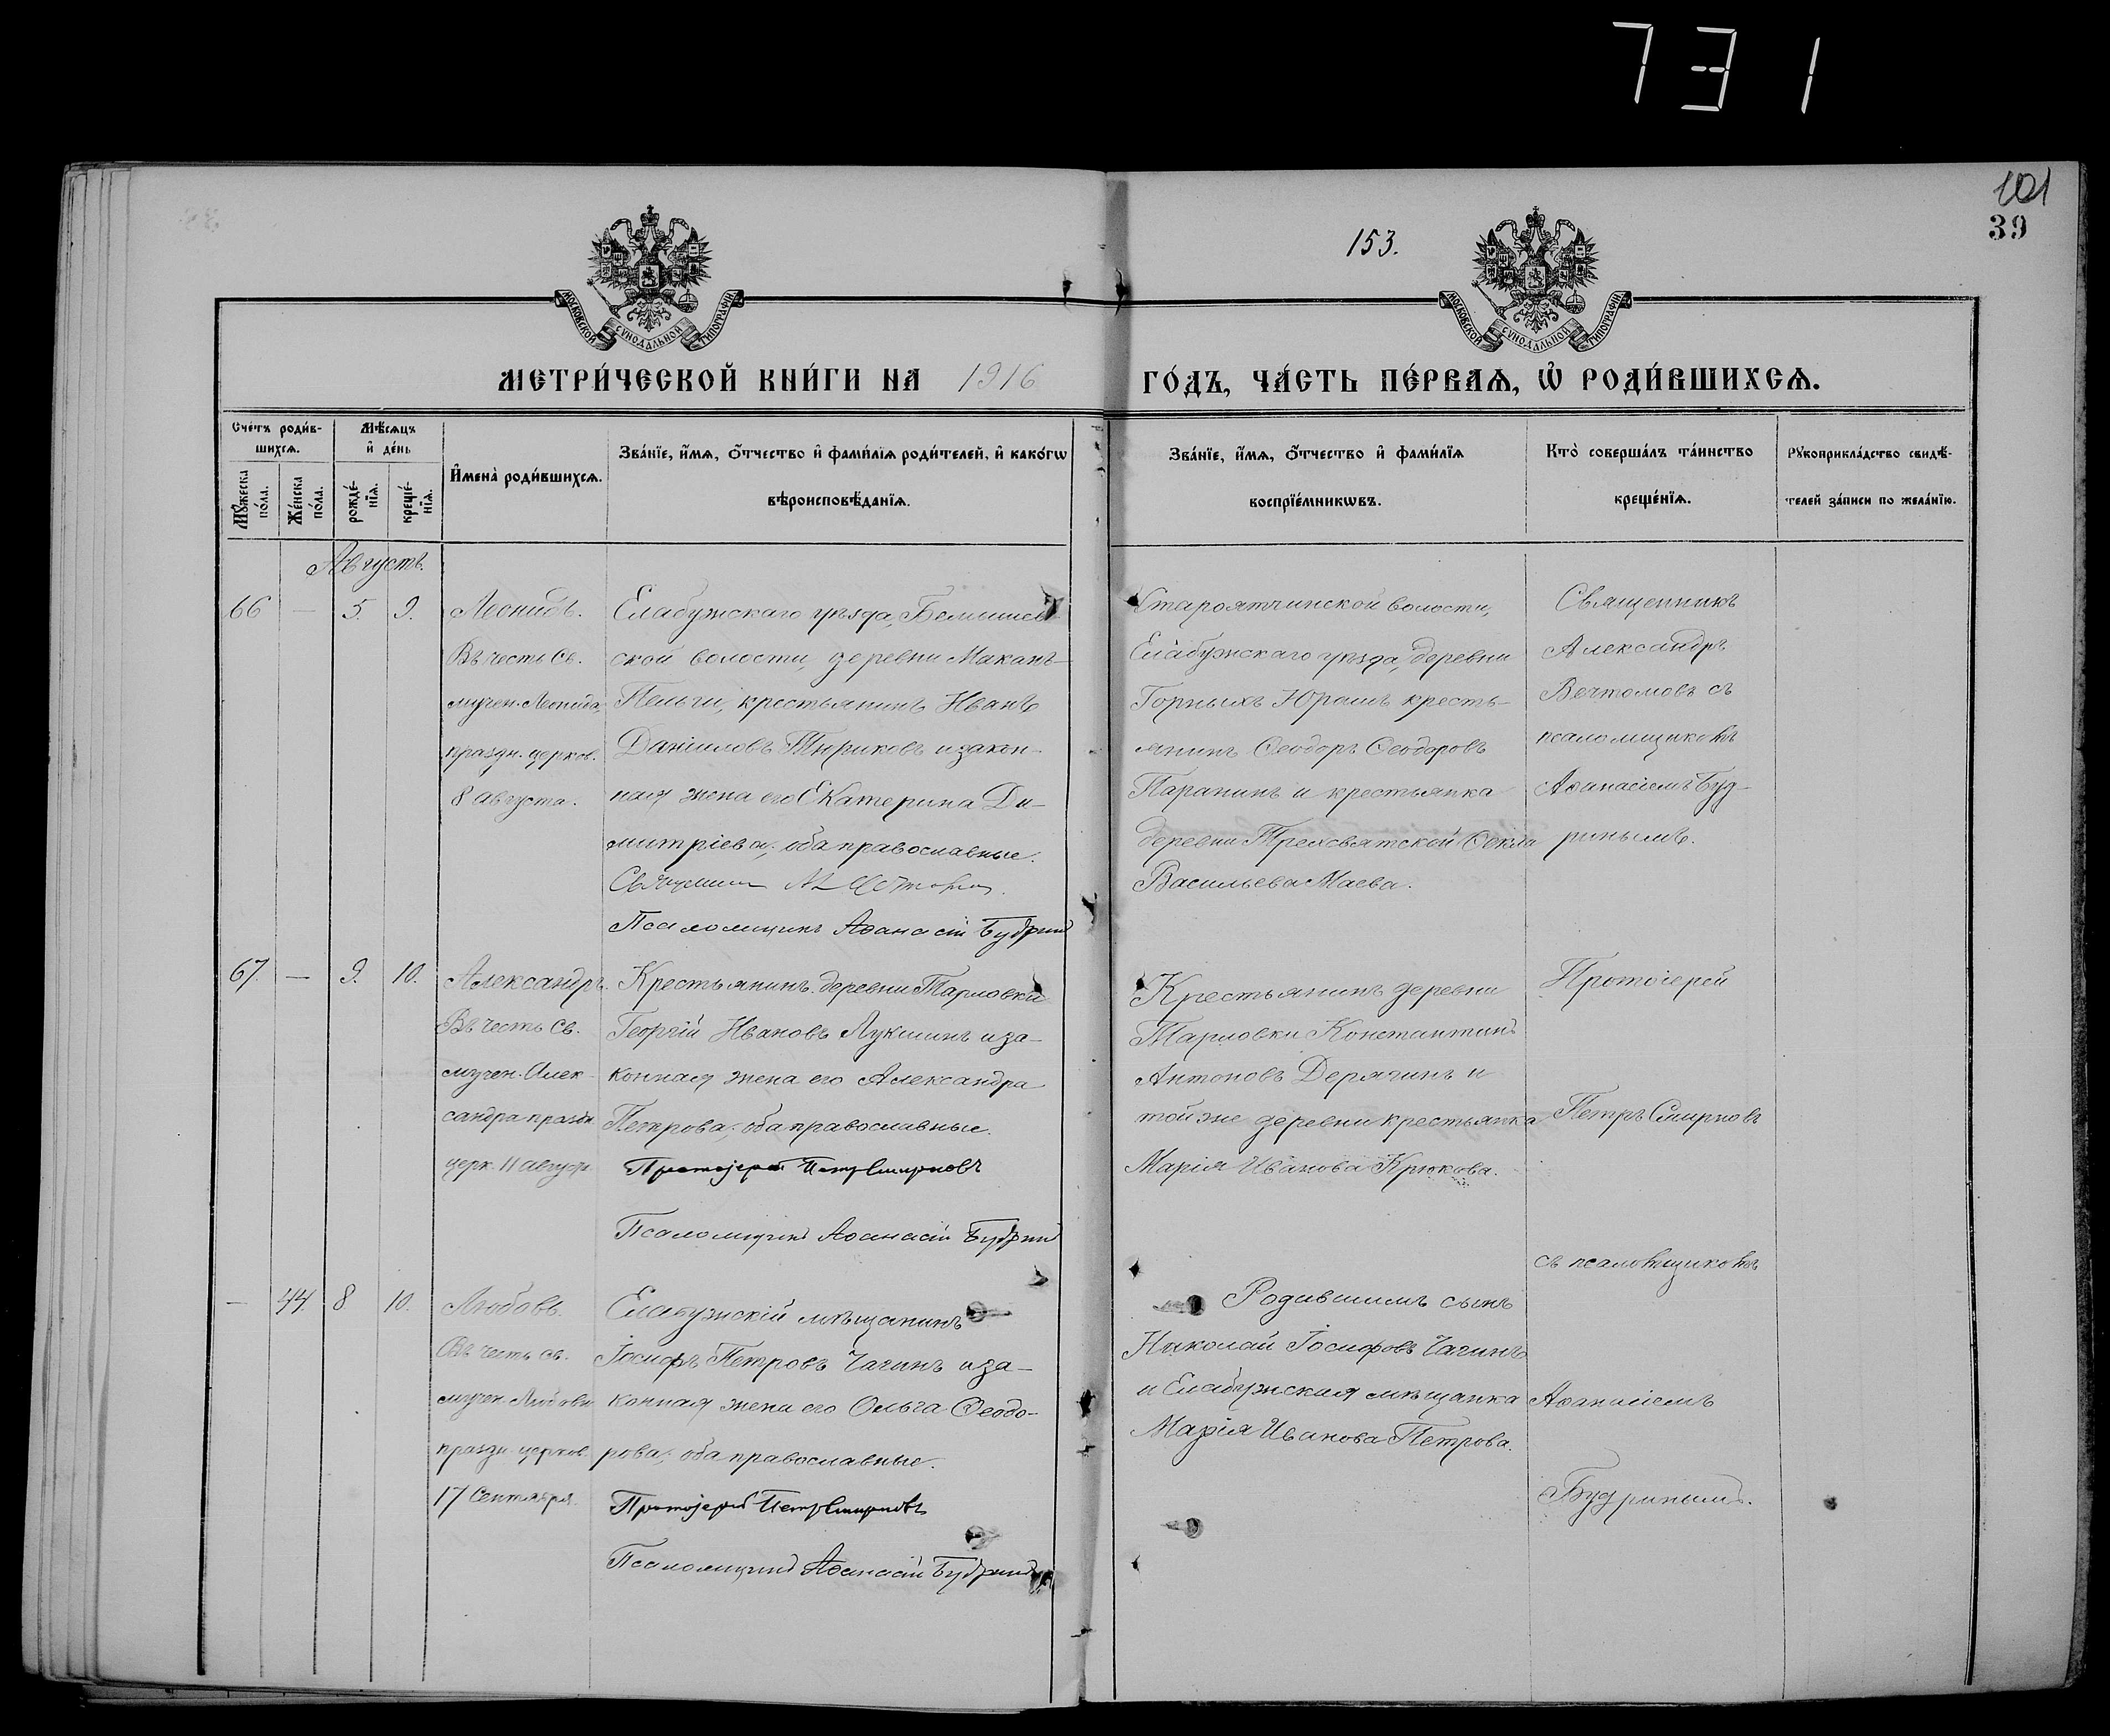 731
101
39
153.
МОСКОВСКОЙ СѴНОДАЛЬНОЙ ТИПОГРАФІИ
МОСКОВСКОЙ СѴНОДАЛЬНОЙ ТИПОГРАФІИ
МЕТРИ́ЧЕСКОЙ КНИ́ГИ НА 1916 ГО́ДЪ, ЧА́СТЬ ПЕ́РВАѦ, Ѡ҆ РОДИ́ВШИХСѦ.
Сче́тъ роди́в-
шихсѧ.
Мꙋ́жеска по́ла.
Же́нска по́ла.
Мѣ́сѧцъ
и҆ де́нь
рожде́-нїѧ.
креще́-нїѧ.
И҆мена̀ роди́вшихсѧ.
Зва́нїе, и҆́мѧ, ѻ҆́тчество и҆ фами́лїѧ роди́телей, и҆ како́гѡ
вѣроисповѣ́данїѧ.
Зва́нїе, и҆́мѧ, ѻ҆́тчество и҆ фами́лїѧ
воспрїе́мникѡвъ.
Кто̀ соверша́лъ та́инство
креще́нїѧ.
Рꙋкоприкла́дство свидѣ́-
телей за́писи по жела́нїю.
Августъ.
66 — 5. 9.
Леонидъ.
Въ честь Св.
мучен. Леонида,
праздн. церков.
8 августа.
Елабужскаго уѣзда, Бемышев-
ской волости, деревни Маканъ-
Пельги, крестьянинъ Иванъ
Данииловъ Тнриковъ и закон-
ная жена его Екатерина Ди-
митріева; оба православные.
Священникъ
Псаломщикъ Аѳанасій Будринъ
Староятчинской волости,
Елабужскаго уѣзда, деревни
Горныхъ Юрашъ кресть-
янинъ Ѳеодоръ Ѳеодоровъ
Паранинъ и крестьянка
деревни Трехсвятской Ѳекла
Васильева Маева.
Священникъ
Александръ
Вечтомовъ съ
псаломщикомъ
Аѳанасіемъ Буд-
ринымъ.
67. — 9. 10.
Александръ.
Въ честь Св.
мучен. Алек-
сандра праздн.
церк. 11 августа
Крестьянинъ деревни Тарловки
Георгій Ивановъ Лукшинъ и за-
конная жена его Александра
Петрова; оба православные.
Протоіерей Петръ Смирновъ
Псаломщикъ Аѳанасій Будринъ
Крестьянинъ деревни
Тарловки Константинъ
Антоновъ Дерягинъ и
той же деревни крестьянка
Марія Иванова Крюкова.
Протоіерей
Петръ Смирновъ
съ псаломщикомъ
— 44. 8 10.
Любовь.
Въ честь св.
мучен. Любови
праздн. церков.
17 Сентября.
Елабужскій мѣщанинъ
Іосифъ Петровъ Чагинъ и за-
конная жена его Ольга Ѳеодо-
рова; оба православные.
Протоіерей Петръ Смирновъ
Псаломщикъ Аѳанасій Будринъ
Родившимъ сынъ
Николай Іосифовъ Чагинъ
и Елабужская мѣщанка
Марія Иванова Петрова.
Аѳанасіемъ
Будринымъ.